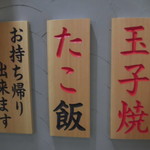 玉子焼
たこ飯
お持ち帰り
出来ます